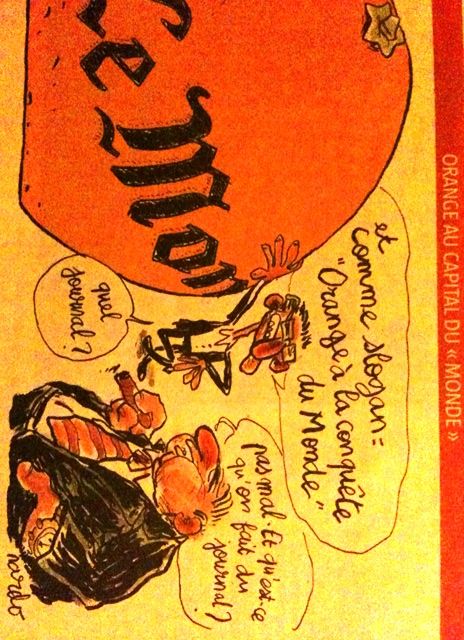 ORANGE AU CAPITAL DU « MONDE »
Le Mon
et
comme slogan =
"Orange à la conquête
du Monde"
pas mal. Et qu'est-ce
qu'on fait du
journal ?
quel
journal ?
nardo